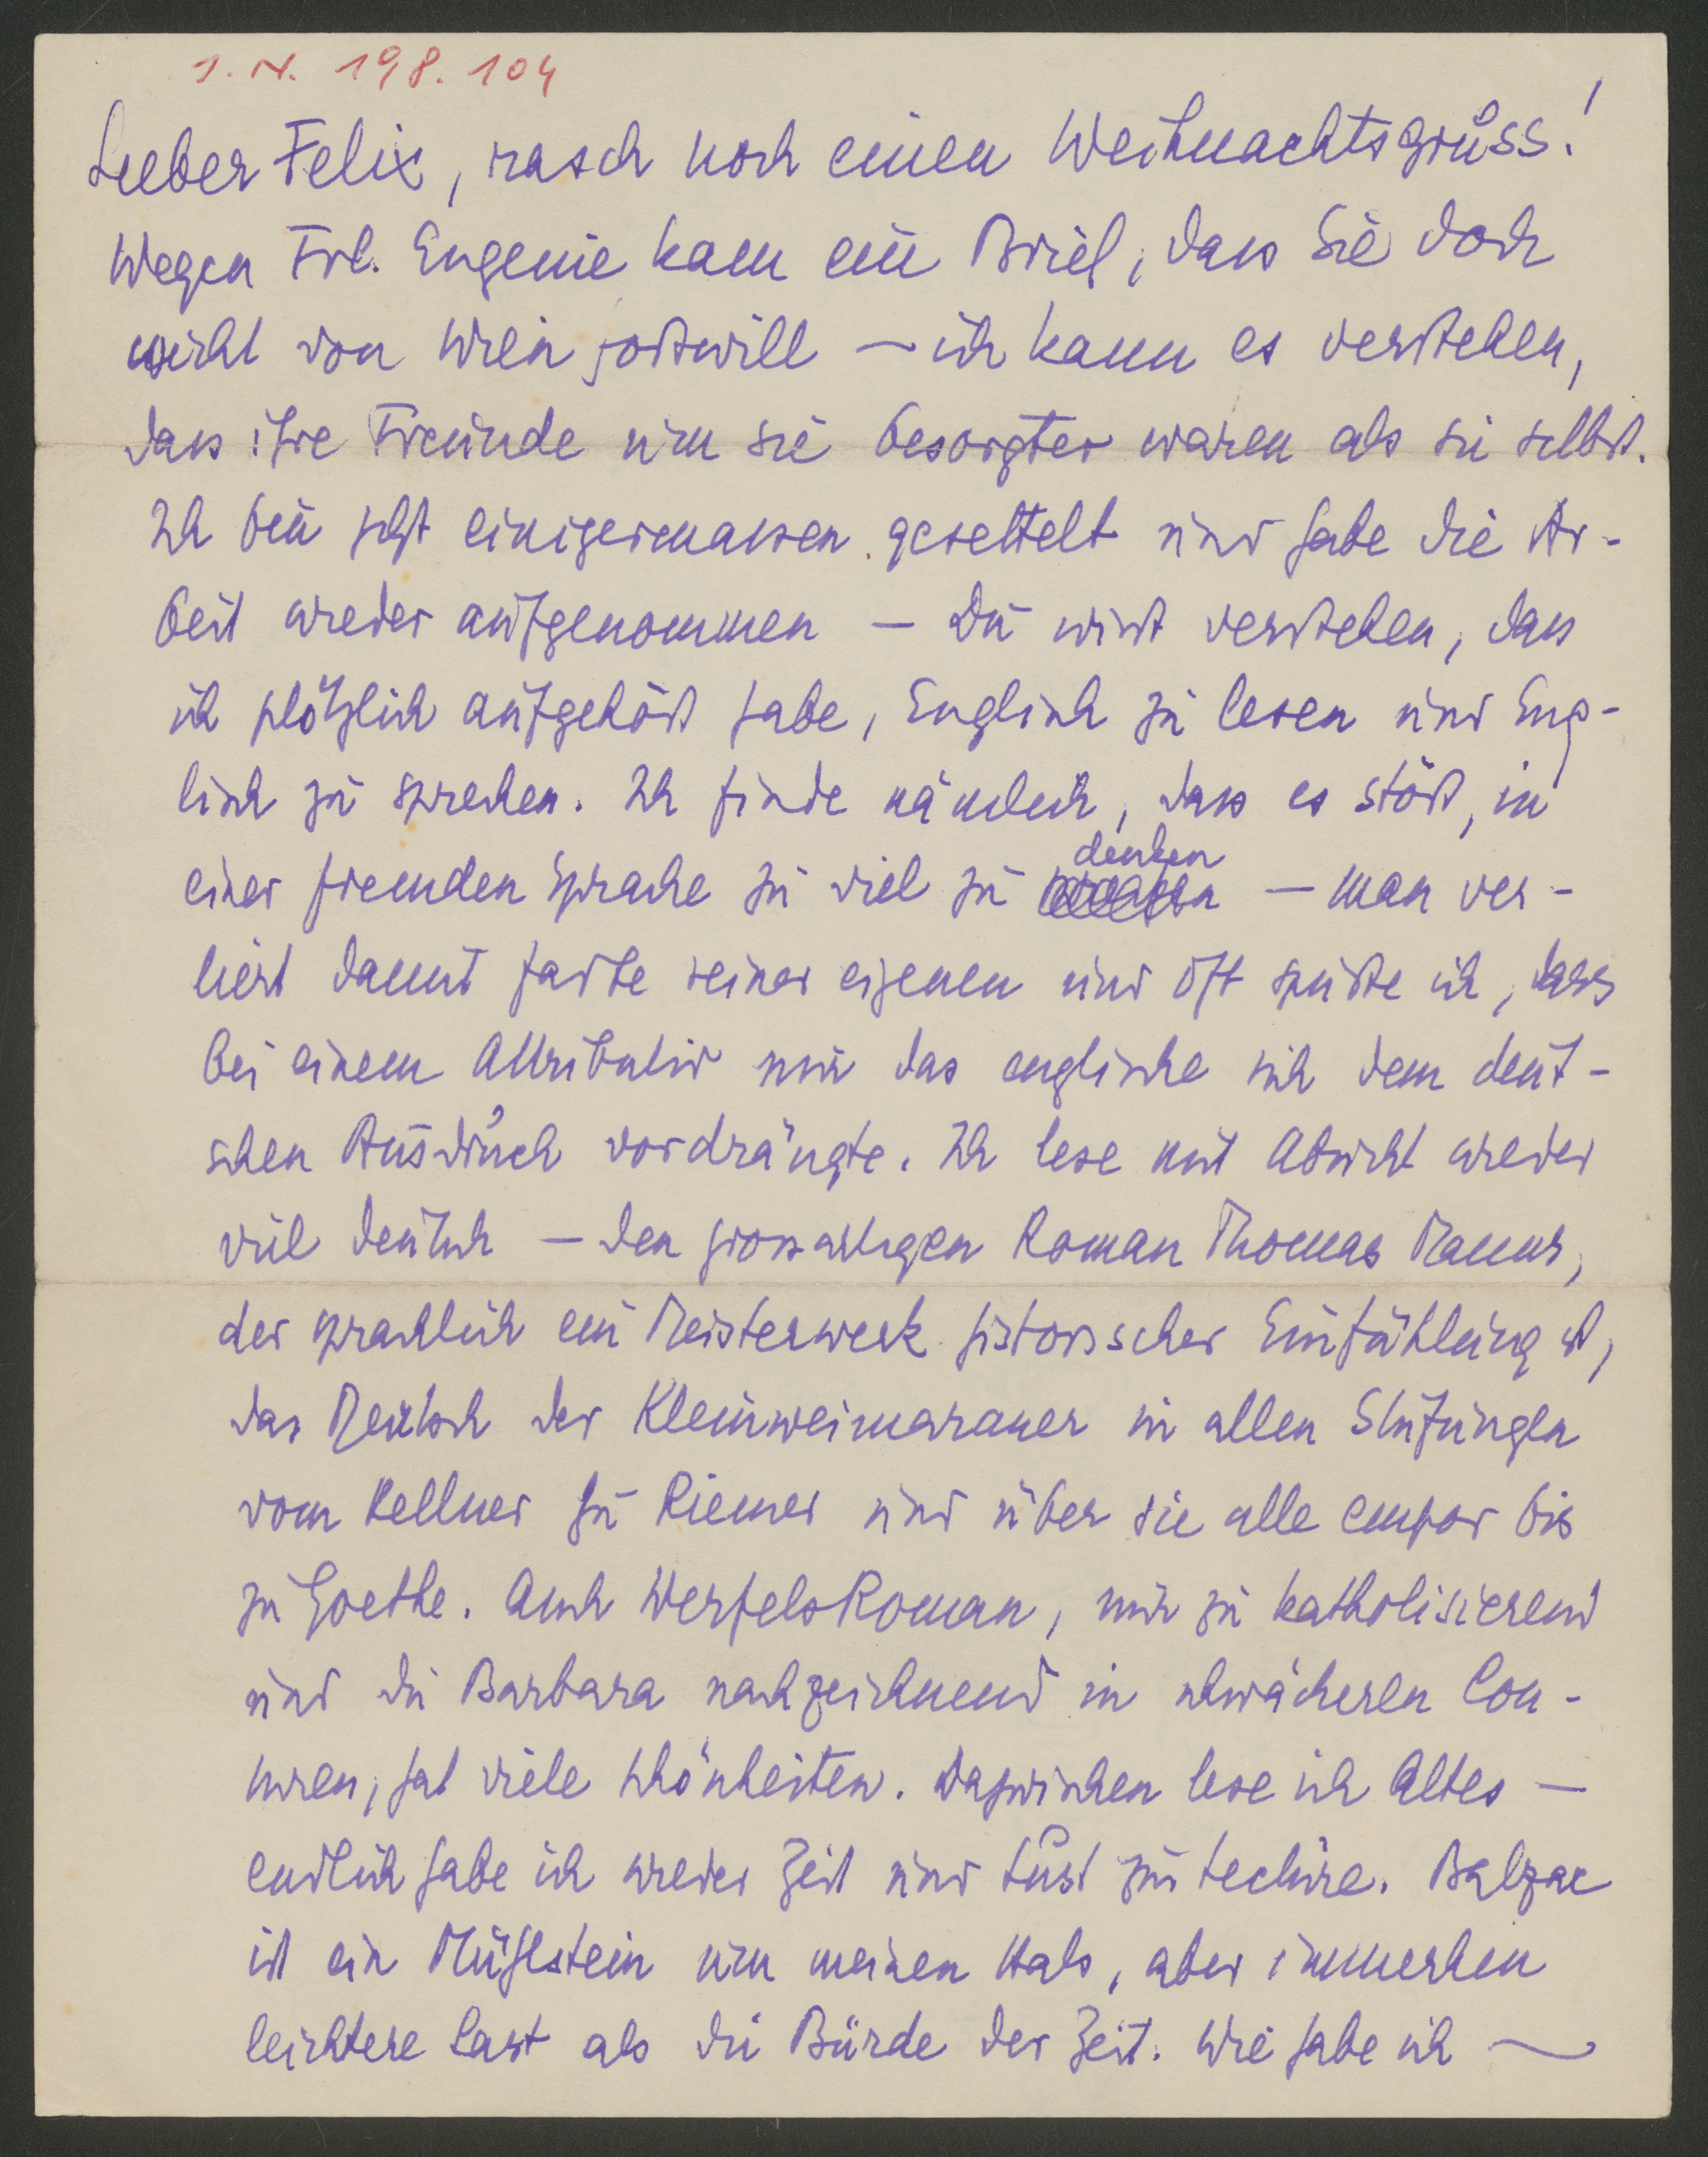 I. N. 198.104
Lieber Felix, rasch noch einen Weihnachtsgruss!
Wegen Frl. Eugenie kam ein Brief, dass Sie doch
nicht von Wien fortwill – ich kann es verstehen,
dass ihre Freunde um sie besorgter waren als sie selbst.
Ich bin jetzt einigermassen gesettelt und habe die Ar-
beit wieder aufgenommen – Du wirst verstehen, dass
ich plötzlich aufgehört habe, Englisch zu lesen und Eng-
lisch zu sprechen. Ich finde nämlich, dass es stört, in
einer fremden Sprache zu viel zu denken – man ver-
liert damit Farbe seiner eigenen und oft spürte ich, dass
bei einem Attributiv mir das englische sich dem deut-
schen Ausdruck vordrängte. Ich lese mit Absicht wieder
viel deutsch – den grossartigen Roman Thomas Manns,
der sprachlich ein Meisterwerk historischer Einfühlung ist,
das Deutsch der Kleinweimaraner in allen Stufungen
vom Kellner zu Riemer und über sie alle empor bis
zu Goethe. Auch Werfels Roman, mir zu katholisierend
und die Barbara nachzeichnend in schwächeren Con-
turen, hat viele Schönheiten. Dazwischen lese ich Altes –
endlich habe ich wieder Zeit und Lust zur Lectüre. Balzac
ist ein Mühlstein um meinen Hals, aber immerhin
leichtere Last als die Bürde der Zeit. Wie habe ich –